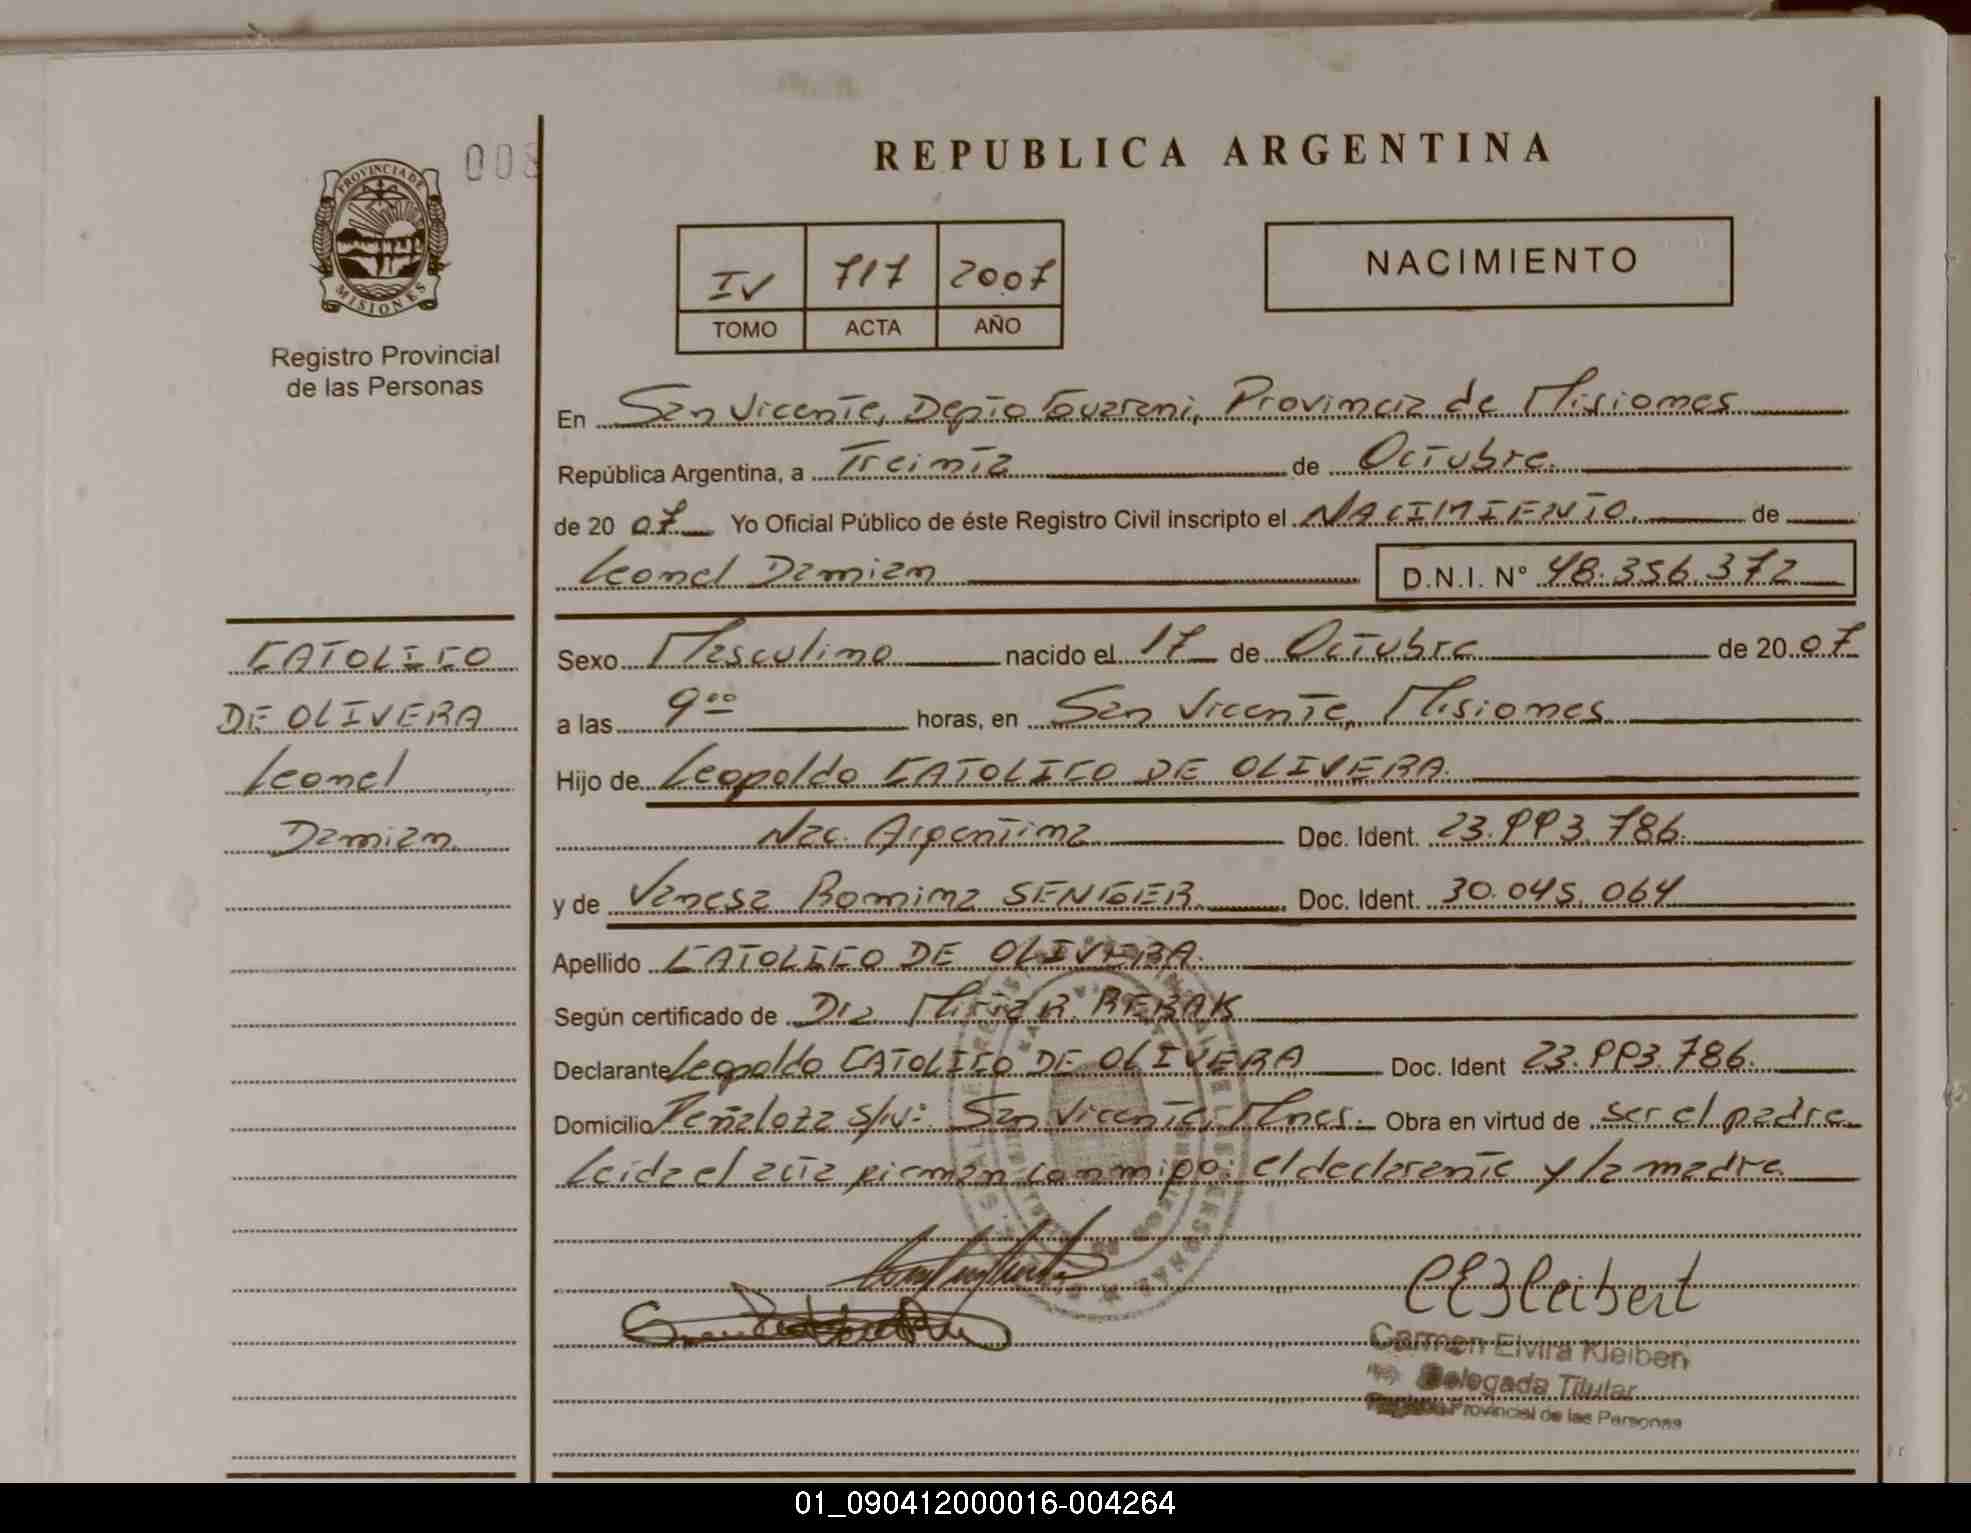 008
PROVINCIA DE
MISIONES
Registro Provincial
de las Personas
CATOLICO
DE OLIVERA
Leonel
Damian
REPUBLICA ARGENTINA
IV 717 2007
TOMO ACTA AÑO
NACIMIENTO
En San Vicente, Depto Guarani, Provincia de Misiones
República Argentina, a Treinta de Octubre
de 20 07 Yo Oficial Público de éste Registro Civil inscripto el NACIMIENTO de
Leonel Damian D.N.I. N° 48.356.372
Sexo Masculino nacido el 17 de Octubre de 20 07
a las 9 00 horas, en San Vicente, Misiones
Hijo de Leopoldo CATOLICO DE OLIVERA
Nac. Argentina Doc. Ident. 23.993.786.
y de Vanesa Romina SENGER Doc. Ident. 30.045.064
Apellido CATOLICO DE OLIVERA.
Según certificado de Dra Mirta R. REBAK
Declarante Leopoldo CATOLICO DE OLIVERA Doc. Ident 23.993.786.
Domicilio Peñaloza S/N: San Vicente, Mnes. Obra en virtud de ser el padre
Leida el acta firman conmigo: el declarante y la madre
CEKleibert
Carmen Elvira Kleibert
Delegada Titular
Registro Provincial de las Personas
01_090412000016-004264